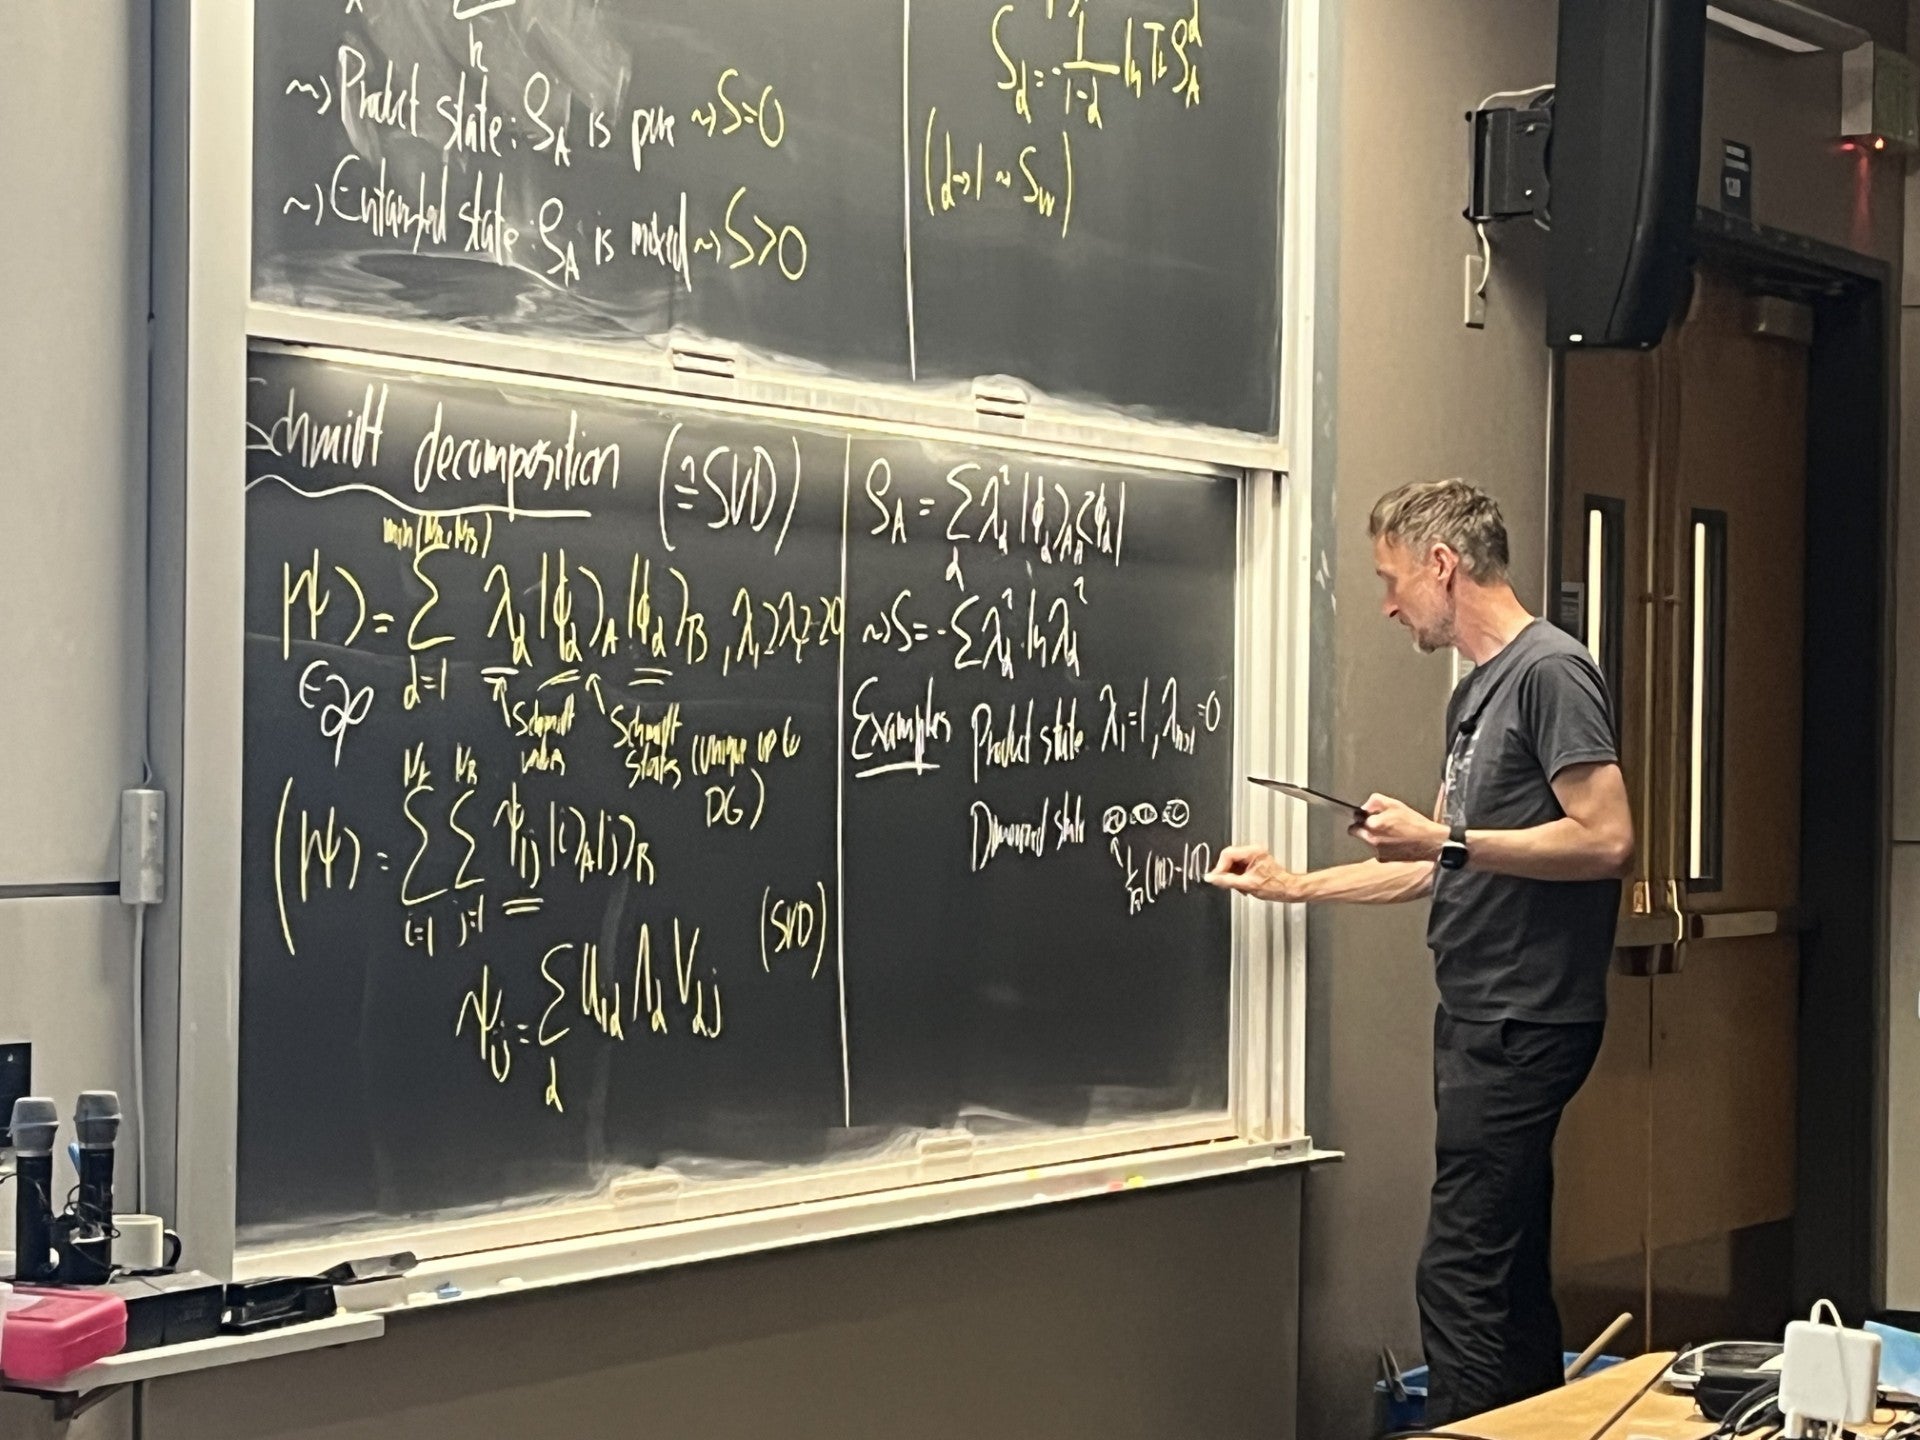 ~> Product state: ρ_A is pure ~> S=0
~> Entangled state: ρ_A is mixed ~> S>0
S_α = 1/(1-α) ln Tr ρ_A^α
(α→1 ~ S_vN)
Schmidt decomposition (≙SVD)
|ψ⟩ = Σ_{α=1}^{min(N_A,N_B)} λ_α |ϕ_α⟩_A |ϕ_α⟩_B , λ_1≥λ_2…≥0
Schmidt values
Schmidt states (unique up to DG)
(|ψ⟩ = Σ_{i=1}^{N_A} Σ_{j=1}^{N_B} ψ_ij |i⟩_A |j⟩_B
ψ_ij = Σ_α U_iα Λ_α V_αj (SVD)
ρ_A = Σ_α λ_α² |ϕ_α⟩_A _A⟨ϕ_α|
~> S = -Σ λ_α² · ln λ_α²
Examples Product state λ_1=1, λ_{n>1}=0
state